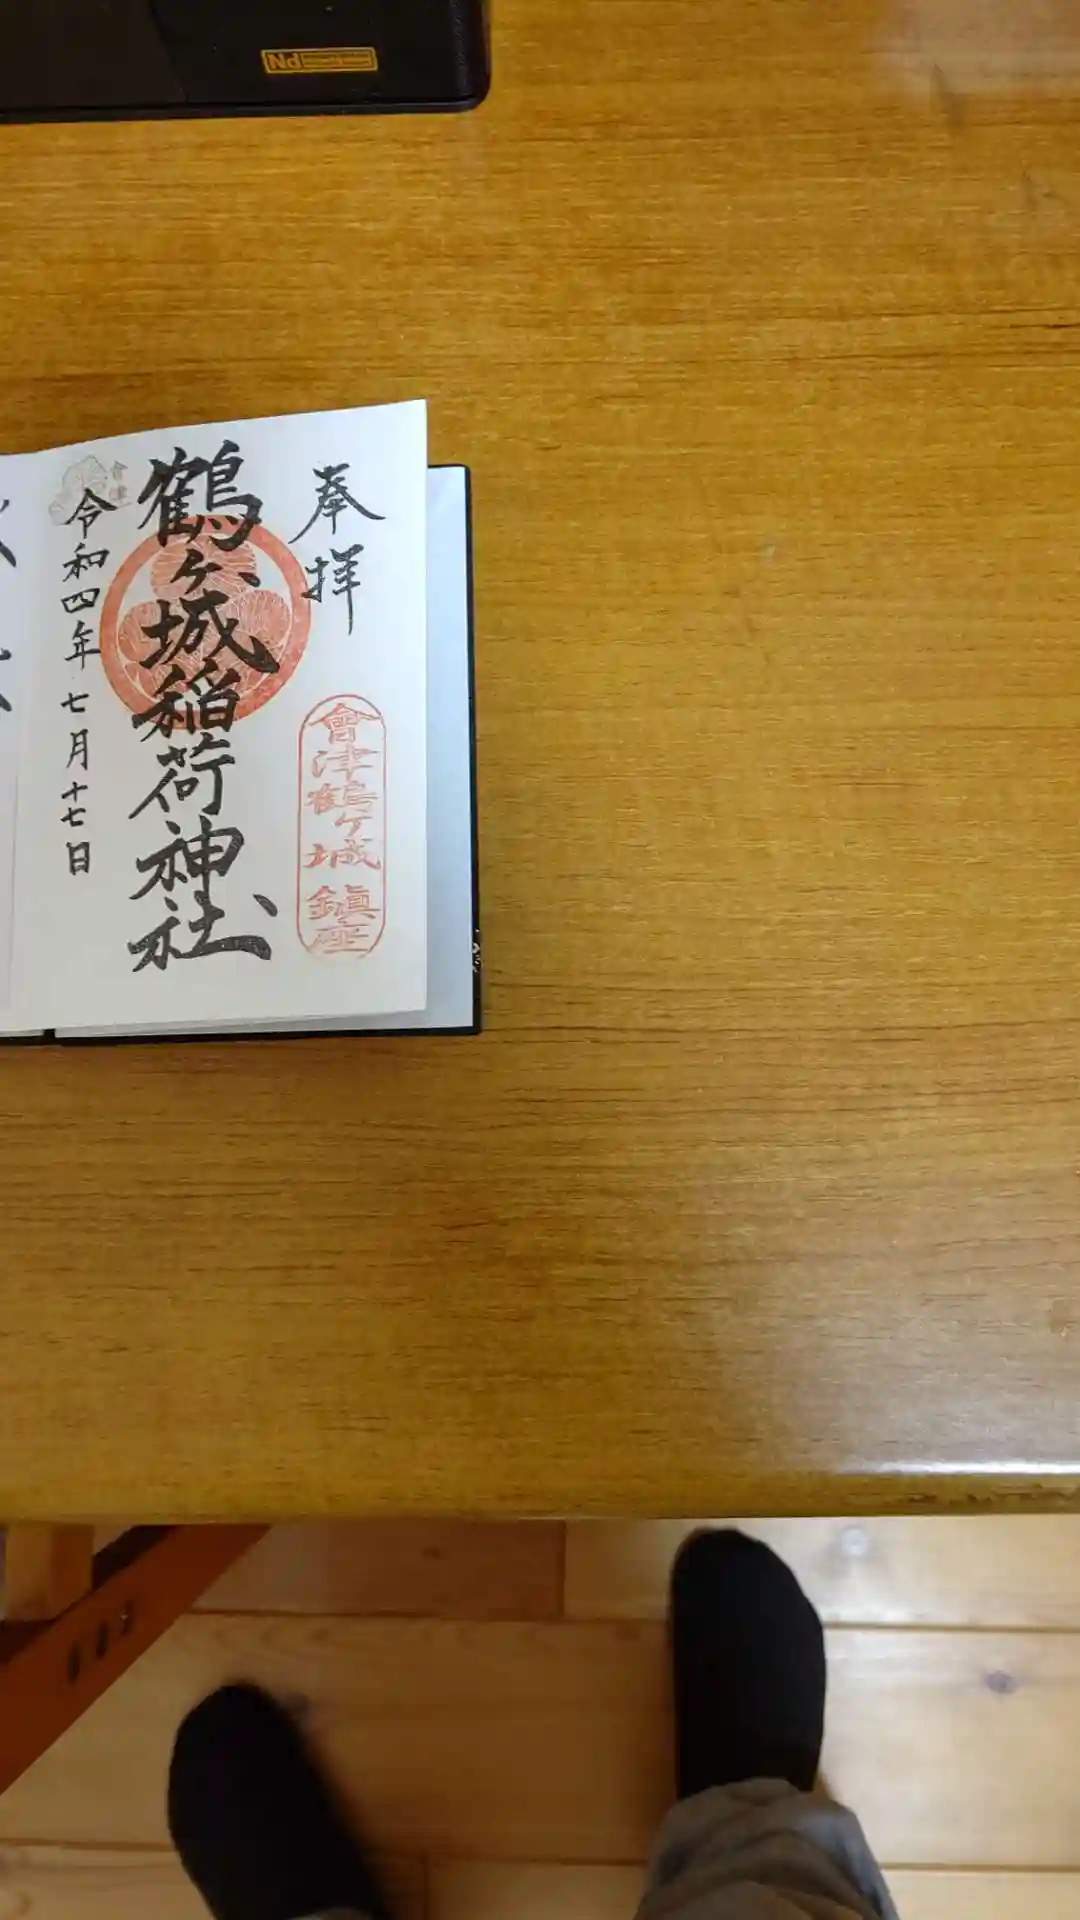 奉拝
會津鶴ヶ城鎮座
鶴ヶ城稲荷神社
會津
令和四年七月十七日
Nd